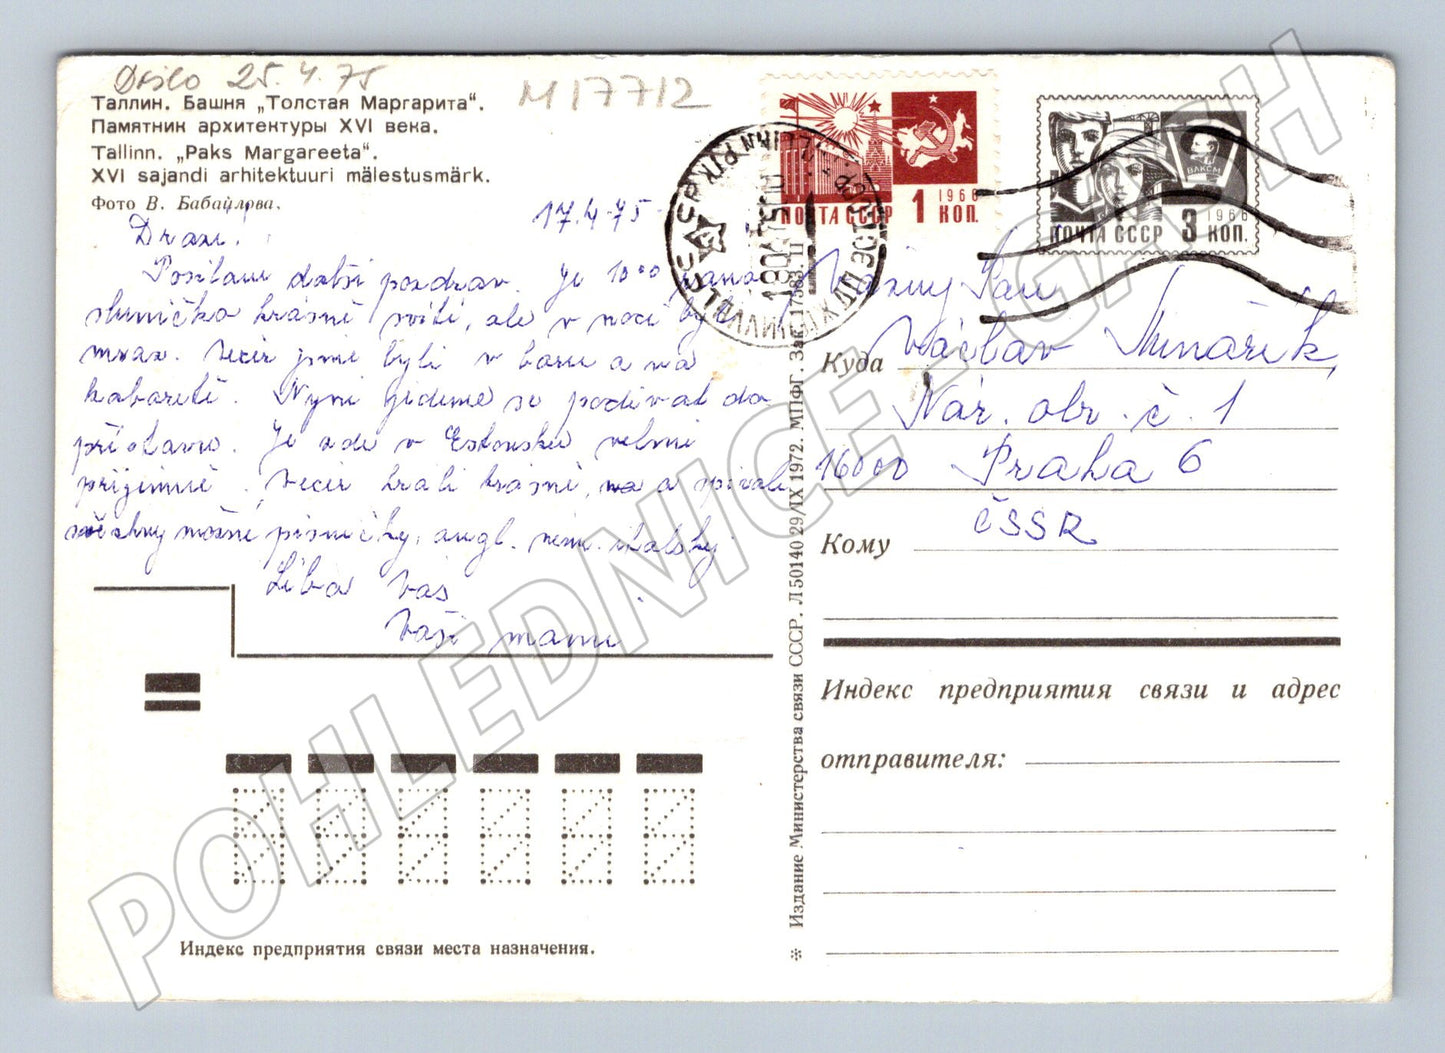 Došlo 25.4.75
M17712
Таллин. Башня „Толстая Маргарита“.
Памятник архитектуры XVI века.
Tallinn. „Paks Margareeta“.
XVI sajandi arhitektuuri mälestusmärk.
Фото В. Бабайлова.
17.4.75
Drazí!
Posílám další pozdrav. Je 10⁰⁰ rána
sluníčko krásně svítí, ale v noci by
mráz. Večír jsme byli v baru a na
kabaretě. Nyní jdeme se podívat do
přístavu. Je zde v Estonsku velmi
příjemně. Večír hráli krásně, a zpívali
všechny možné písničky, angl. něm. italsky.
Líbá Vás
Vaši mami
Индекс предприятия связи места назначения.
ПОЧТА СССР 1 КОП.
1966
ПОЧТА СССР 3 КОП.
1966
ВЛКСМ
ТАЛЛИН
TALLINN
Vážený Pan
Куда Václav Minařík,
Nár. obr. č. 1
16000 Praha 6
ČSSR
Кому
Индекс предприятия связи и адрес
отправителя:
✲ Издание Министерства связи СССР. Л 50140 29/IX 1972. МПФГ. Зак. 17583.
POHLEDNICE - GASH